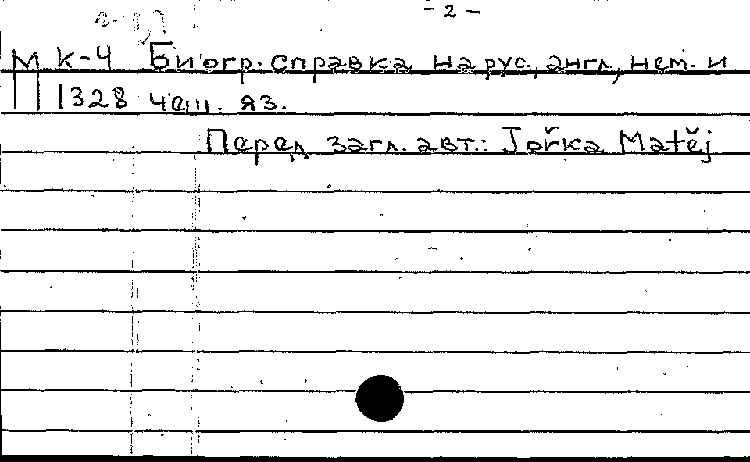 - 2 -
М К-4 Биогр. справка на рус., англ., нем. и
1328 чеш. яз.
Перед загл. авт.: Jořka Matěj